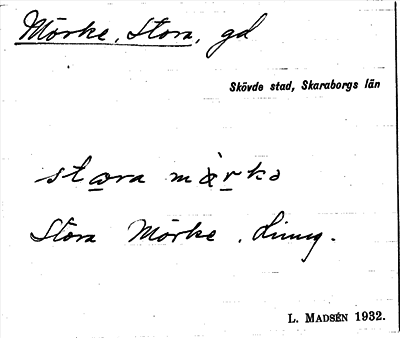 Mörke, Stora, gd
Skövde stad, Skaraborgs län
stora mærkə
Stora Mörke.
L. MADSÉN 1932.